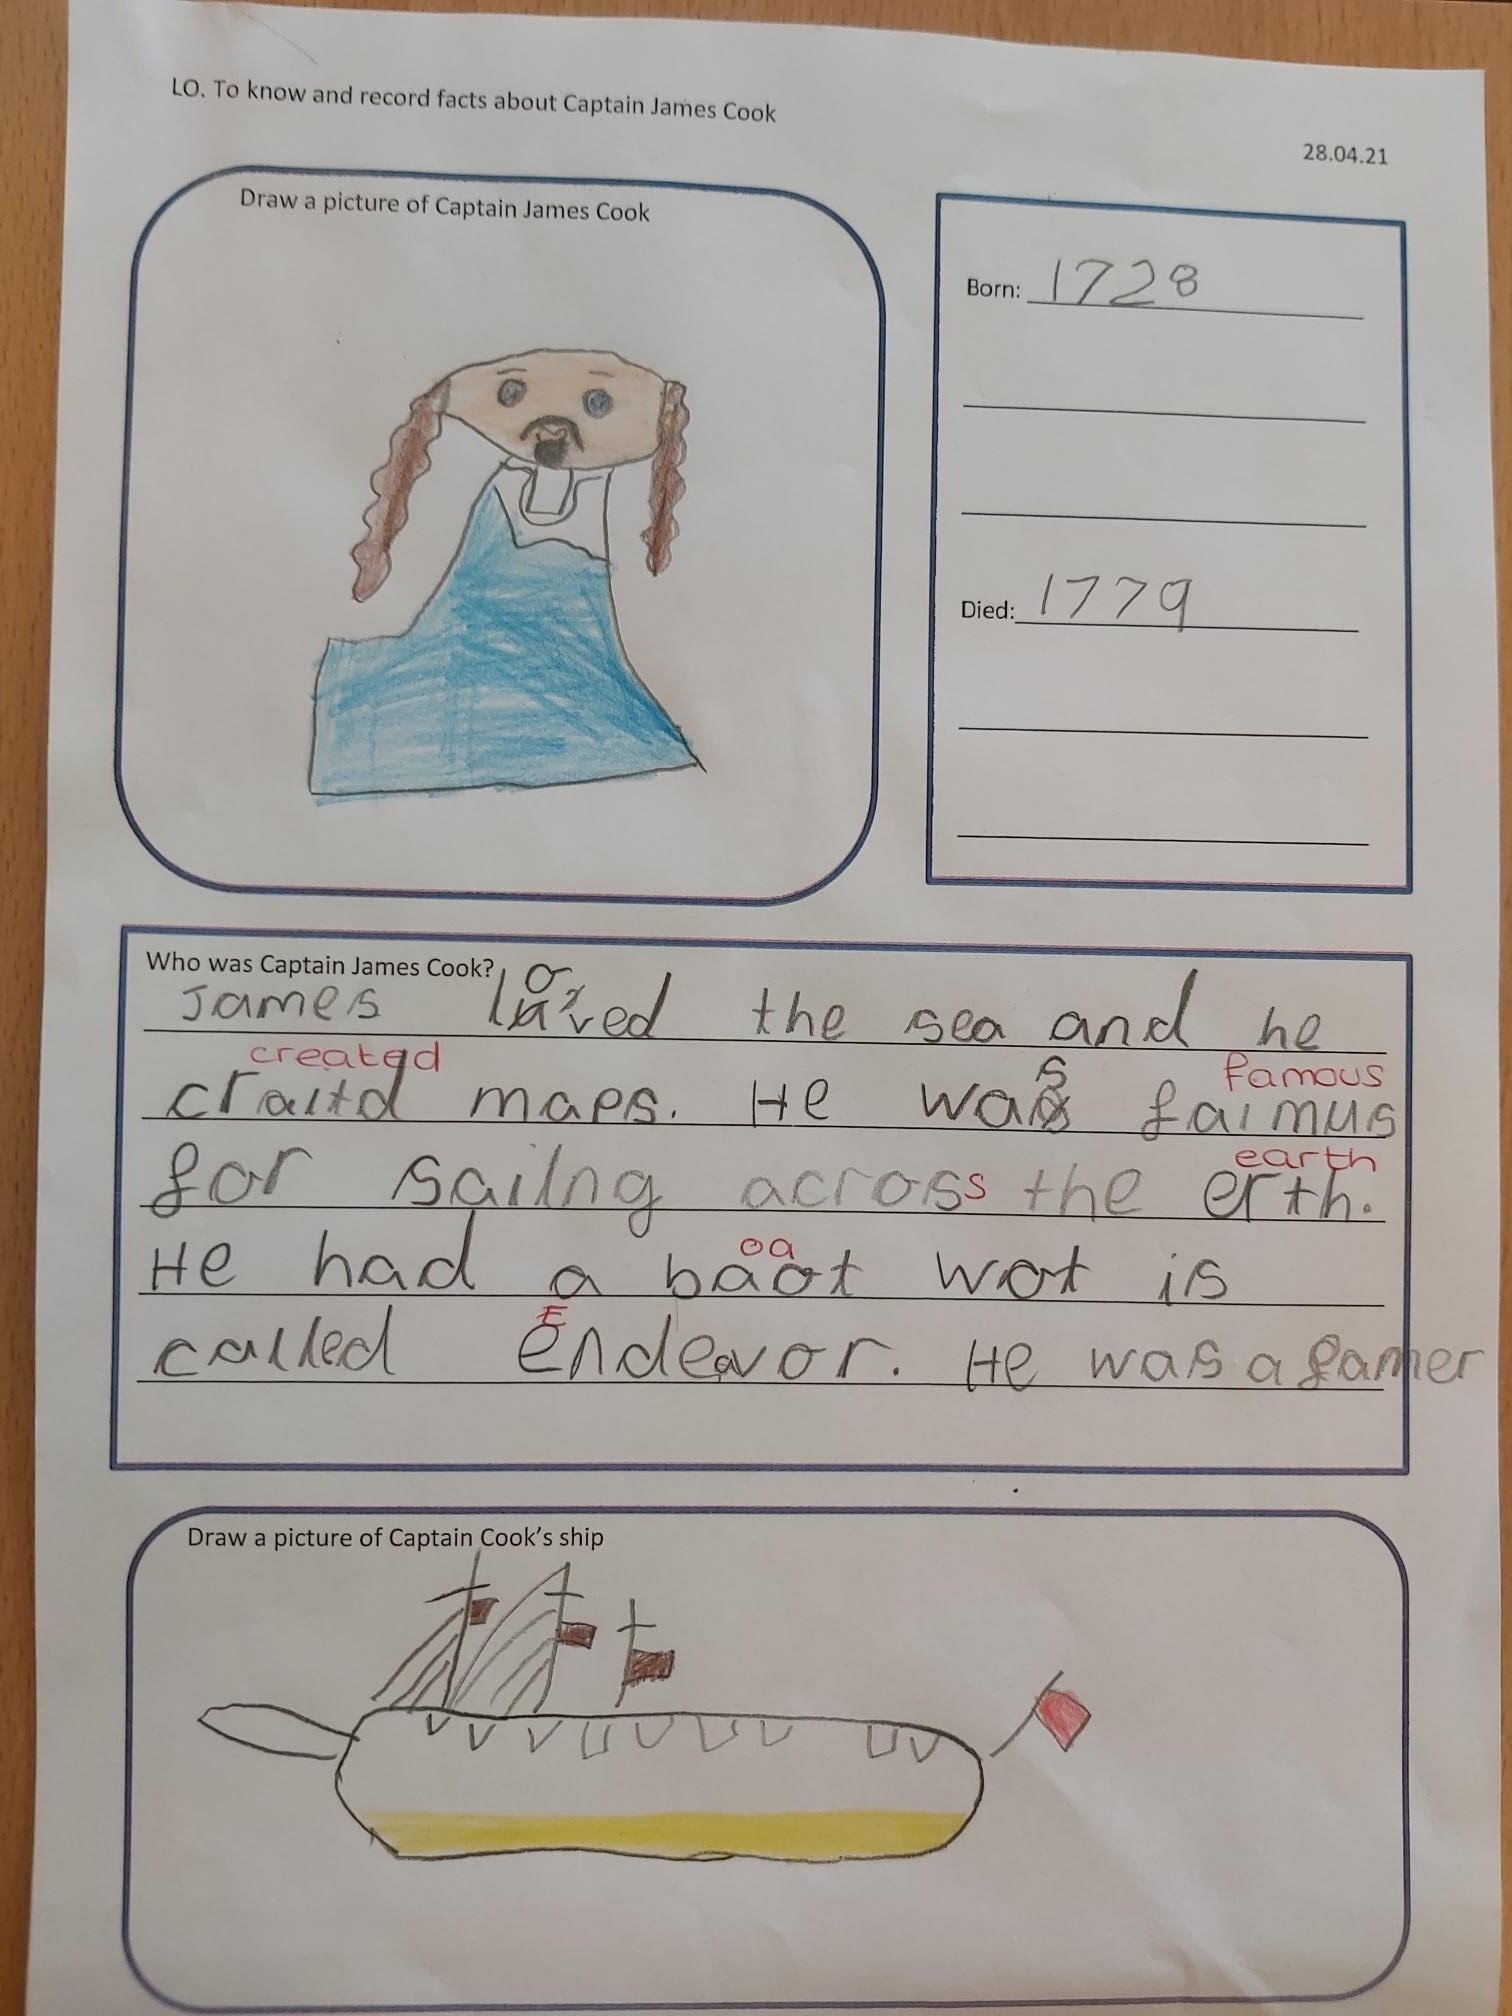 LO. To know and record facts about Captain James Cook
28.04.21
Draw a picture of Captain James Cook
Born: 1728
Died: 1779
Who was Captain James Cook?
James loved the sea and he
created
craitd maps. He was faimus
famous
for sailng across the erth.
earth
He had a baot wot is
oa
called endeavor. He was a famer
E
Draw a picture of Captain Cook's ship